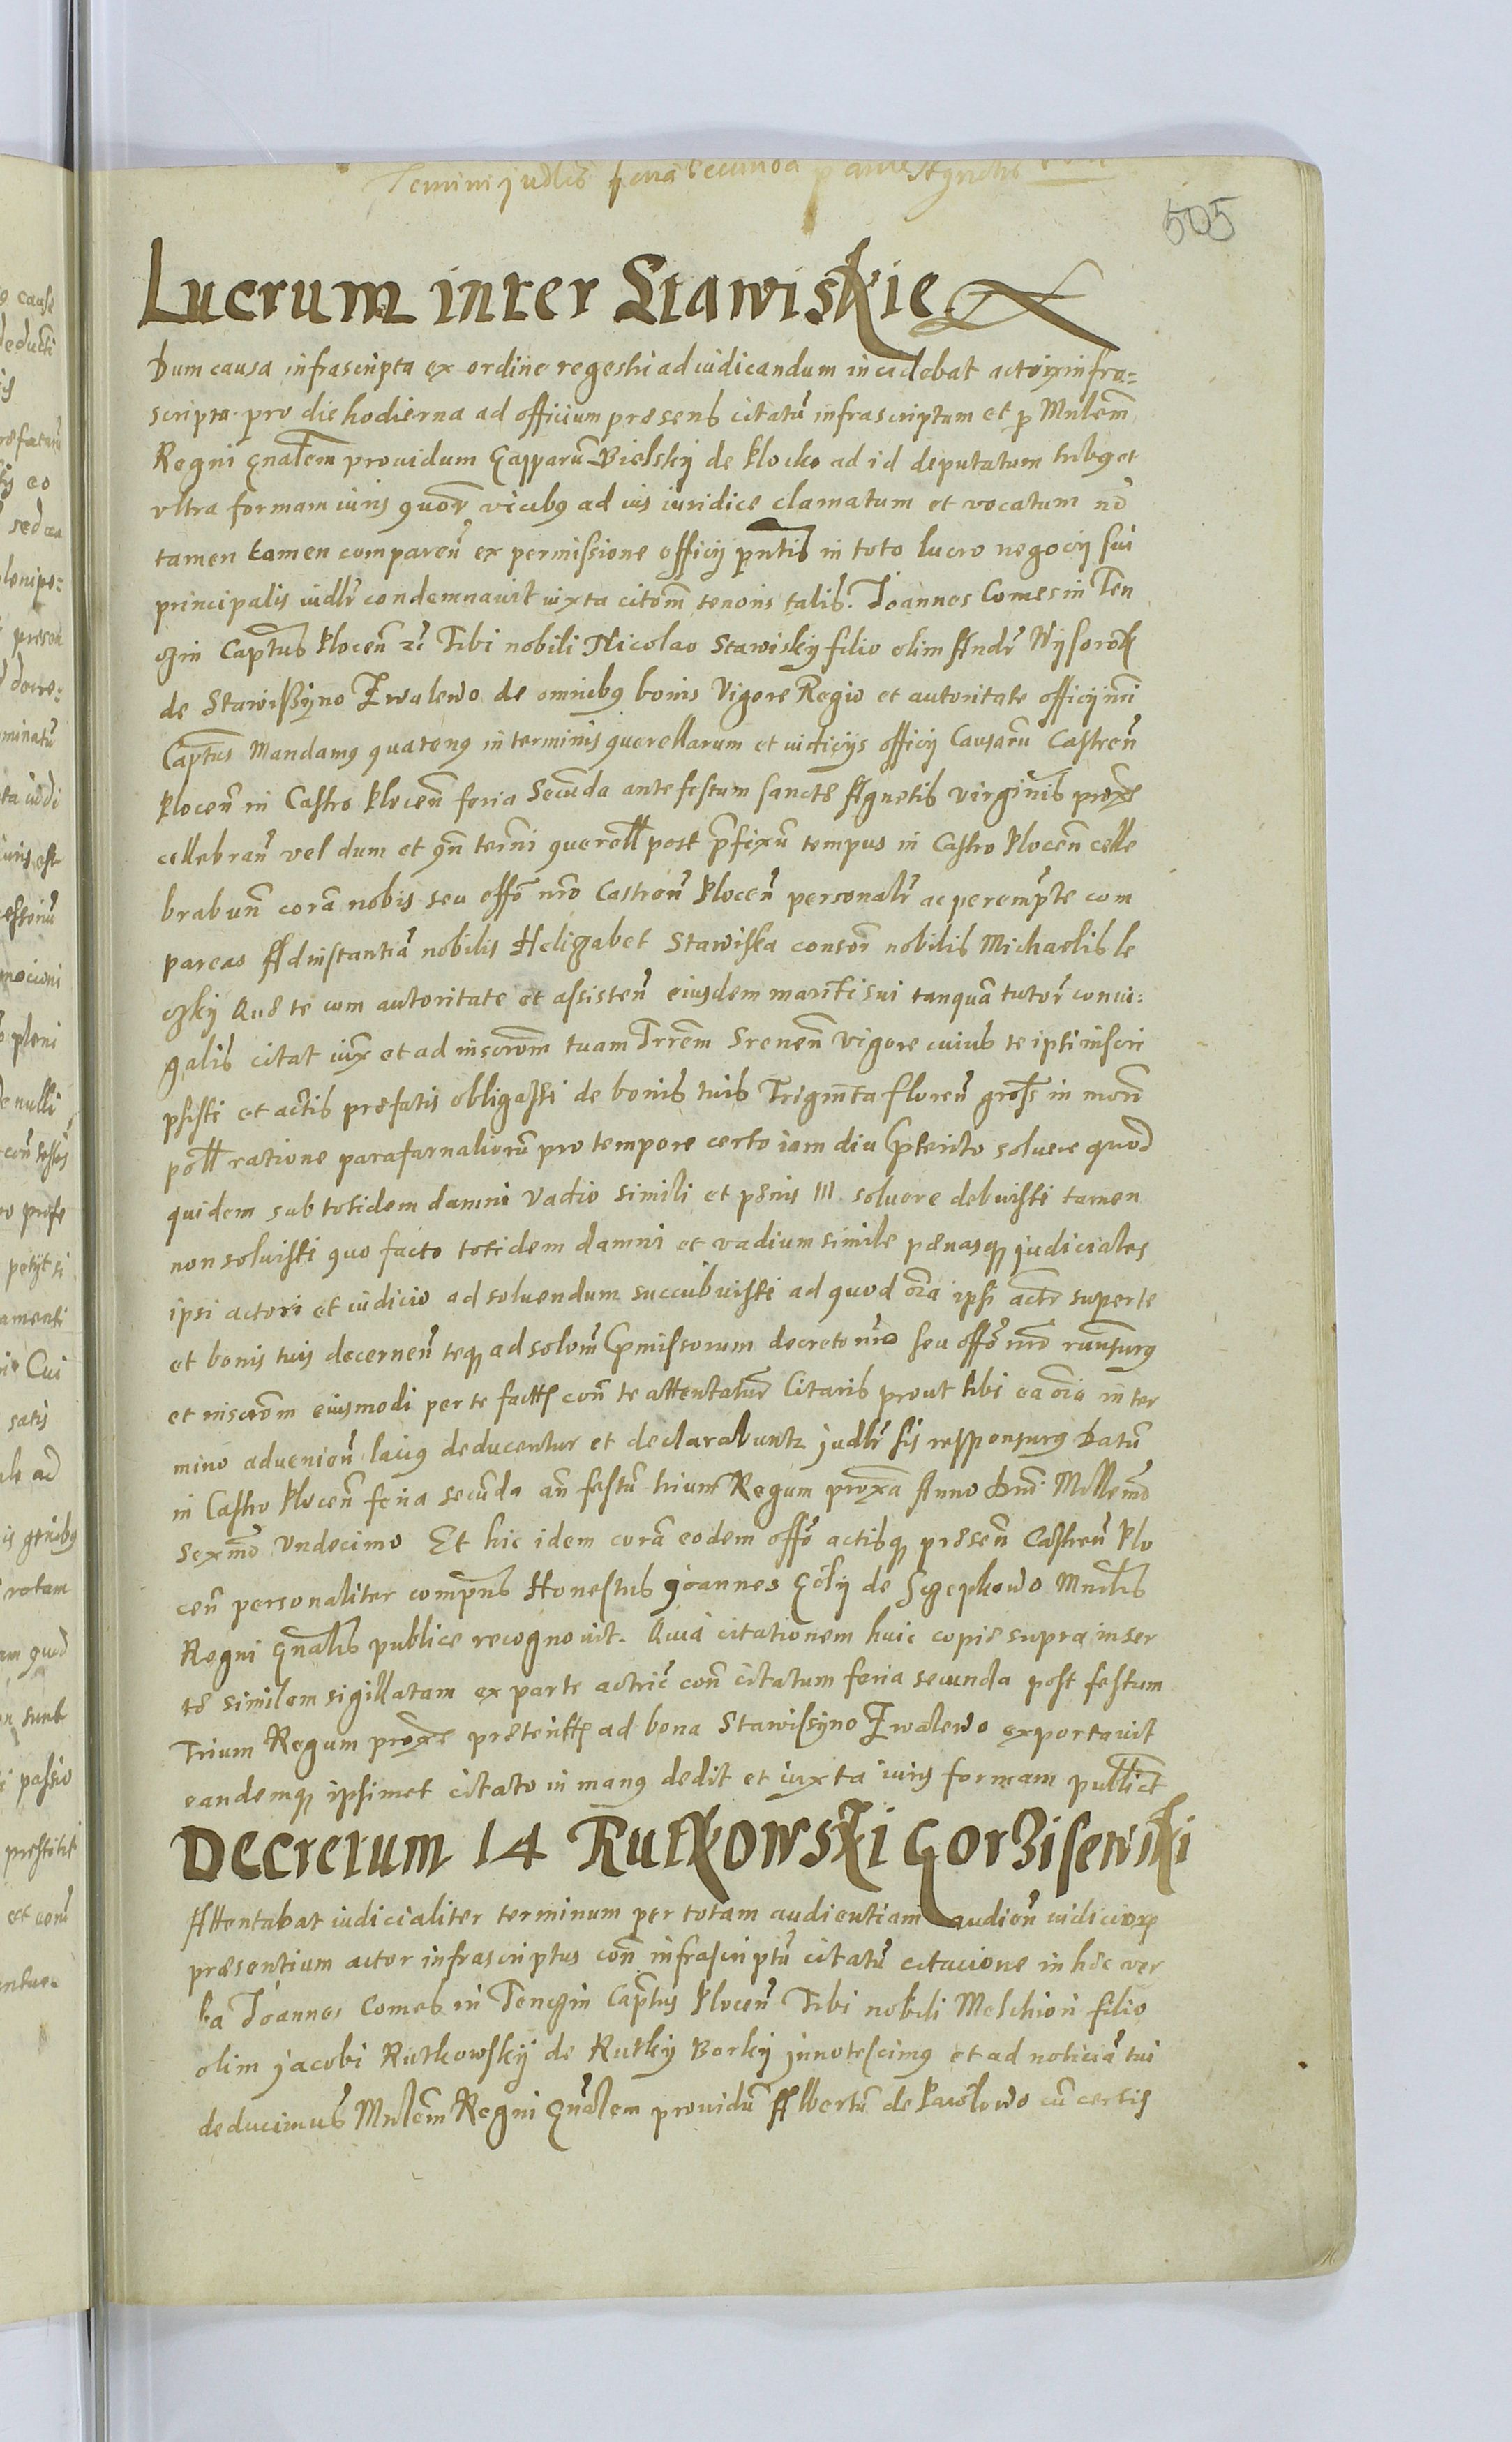 Termini judles feria secunda p ante Agnetis
505
Lucrum inter Stawiskie
Dum causa infrascripta ex ordine regestri ad iudicandum incidebat actrix infra=
scripta pro die hodierna ad officium præsens citatū infrascriptum et p Mnlem
Regni Gnalem prouidum Gasparū Bielsky de Plocko ad id deputatum tribq et
vltra formam iuris quor vicibq ad ius iuridice clamatum et vocatum nō
tamen tamen comparen ex permissione officij pntis in toto lucro negocij sui
principalis iudlr condemnauit iuxta citom tenoris talis. Joannes Comes in Ten
czin Captus Plocen zc Tibi nobili Nicolao Stawisky filio olim Andr Wysorok
de Stawissyno Zwalewo de omnibq bonis Vigore Regio et autoritate officij nri
Captus Mandamq quatenq in terminis querellarum et iudicijs officij Causaru Castren
Plocen in Castro Plocen feria Secunda ante festum sanctæ Agnetis virginis proxe
cellebran vel dum et qn termi querell post pfixū tempus in Castro Plocen celle
brabun corā nobis seu offo nro Castren Plocen personalr ac perempte com
pareas Ad instantiā nobilis Helizabet Stawiska consor nobilis Michaelis le
czky Quæ te cum autoritate et assisten eiusdem mariti sui tanquā tutor coniu=
galis citat iux et ad inscrom tuam Trrem Srenen vigore cuius te ipsi inscri
psisti et actis præfatis obligasti de bonis tuis Triginta floren gross in mon
poll ratione parafarnaliorū pro tempore certo iam diu pterito soluere quod
quidem sub totidem damni vadio simili et pænis III soluere debuisti tamen
non soluisti quo facto totidem damni et vadium simile pænasq judiciales
ipsi actori et iudicio ad soluendum succubuisti ad quod oia ipsi actr super te
et bonis tuis decernen teq ad solom pmissorum decreto nro seu offo nro
et inscrom eiusmodi per te fact con te attentatur Citaris prout tibi ea oia in ter
mino aduenien laciq deducentur et declarabuntr judlr sis responsurq Datū
in Castro Plocen feria secūda an festū trium Regum proxa Anno Dni Millemo
Sexmo Vndecimo Et hic idem corā eodem offo actisq præsen Castren Plo
cen personaliter compns Honestus Joannes Goly de Sczepkowo Mnlis
Regni Gnalis publice recognouit. Quia citationem huic copiæ supra inser
tæ similem sigillatam ex parte actric con citatum feria secunda post festum
Trium Regum proxe præterit ad bona Stawissyno Zwalewo exportauit
eandemq ipsimet citato in manq dedit et iuxta iuris formam publict
Decretum 14 Rutkowski Gorzisewski
Attentabat iudicialiter terminum per totam audientiam audien iudicior
præsentium actor infrascriptus con infrascriptū citatū citacione in hæc ver
ba Joannes Comes in Tenczin Captus Plocen Tibi nobili Melchiori filio
olim jacobi Rutkowskij de Rutky Borky jnnotescimq et ad noticiā tui
deducimus Mnlem Regni Gnalem prouidū Albertū de Pawlowo cū certis